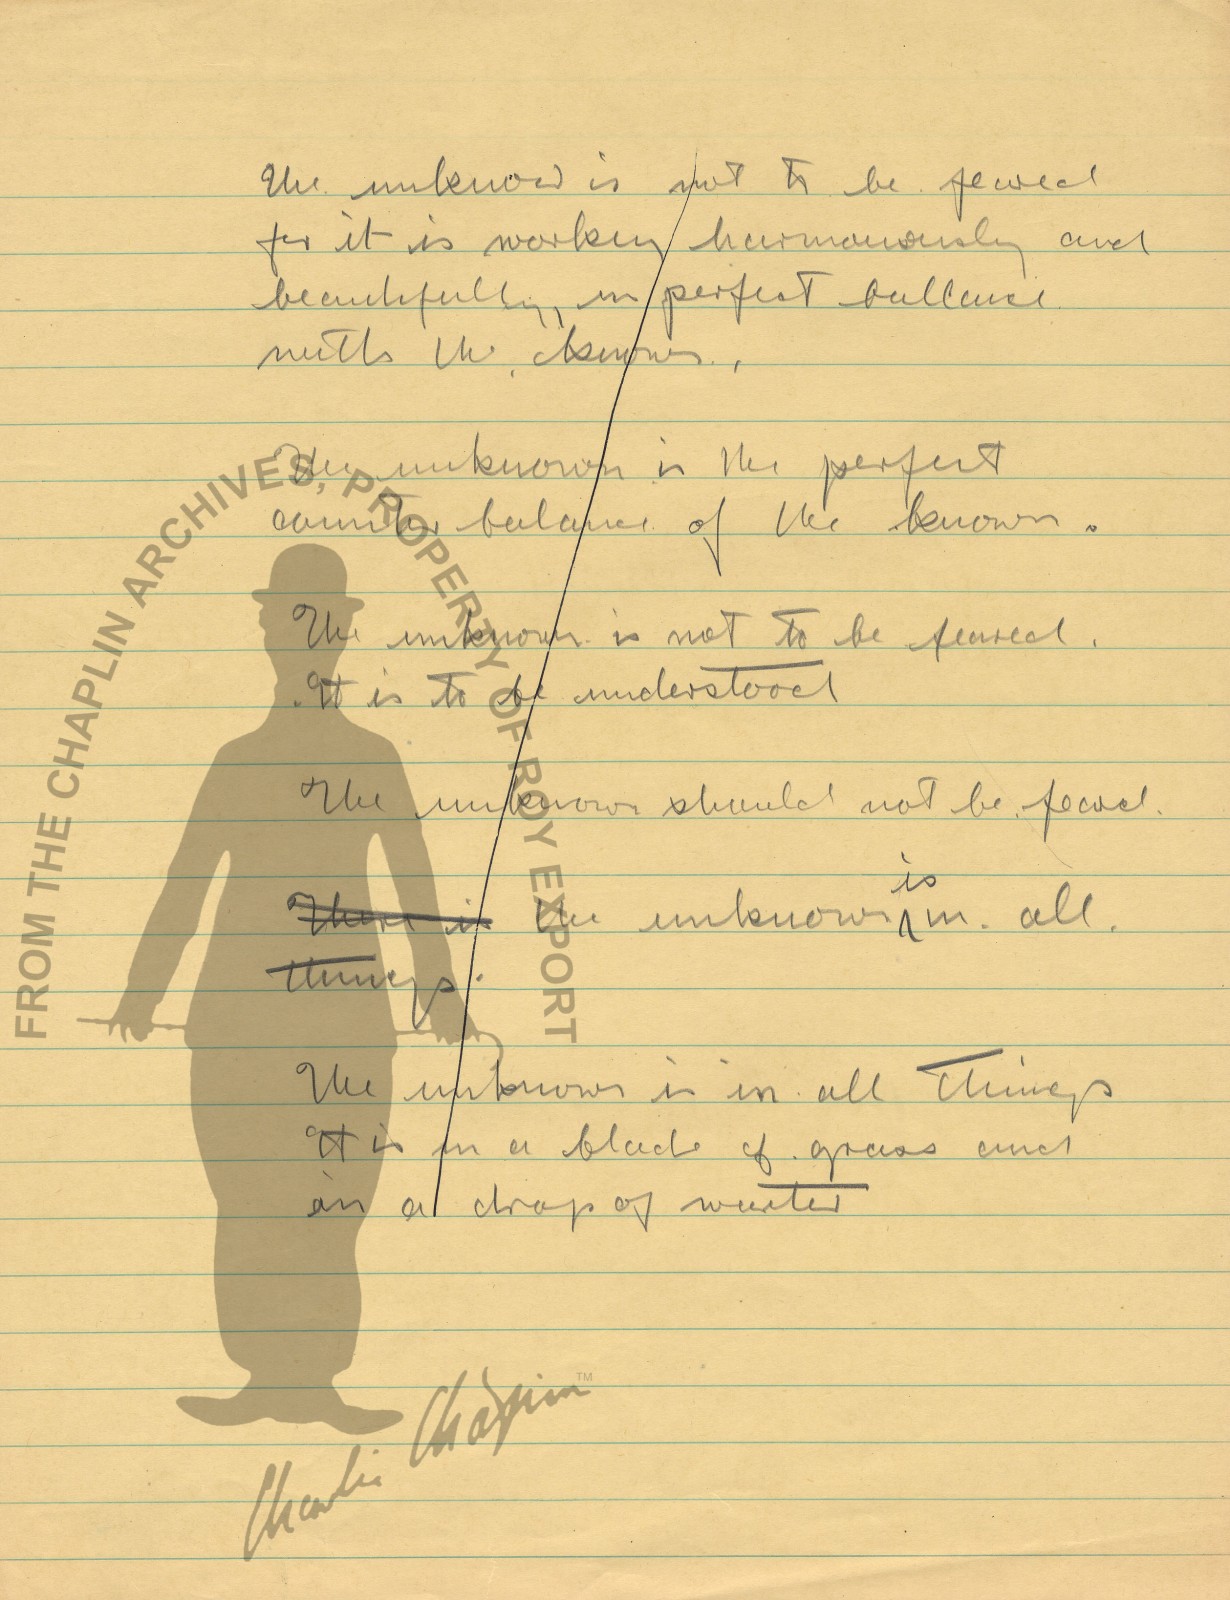 The unknow is not to be feared
for it is working harmonously and
beautifully, in perfect ballance
with the known.
The unknown is the perfect
counter balance of the known.
The unknown is not to be feared.
It is to be understood
The unknown should not be feared.
There is the unknown is in all
things.
The unknown is in all things
It is in a blade of grass and
in a drop of water
FROM THE CHAPLIN ARCHIVES, PROPERTY OF ROY EXPORT
Charlie Chaplin™